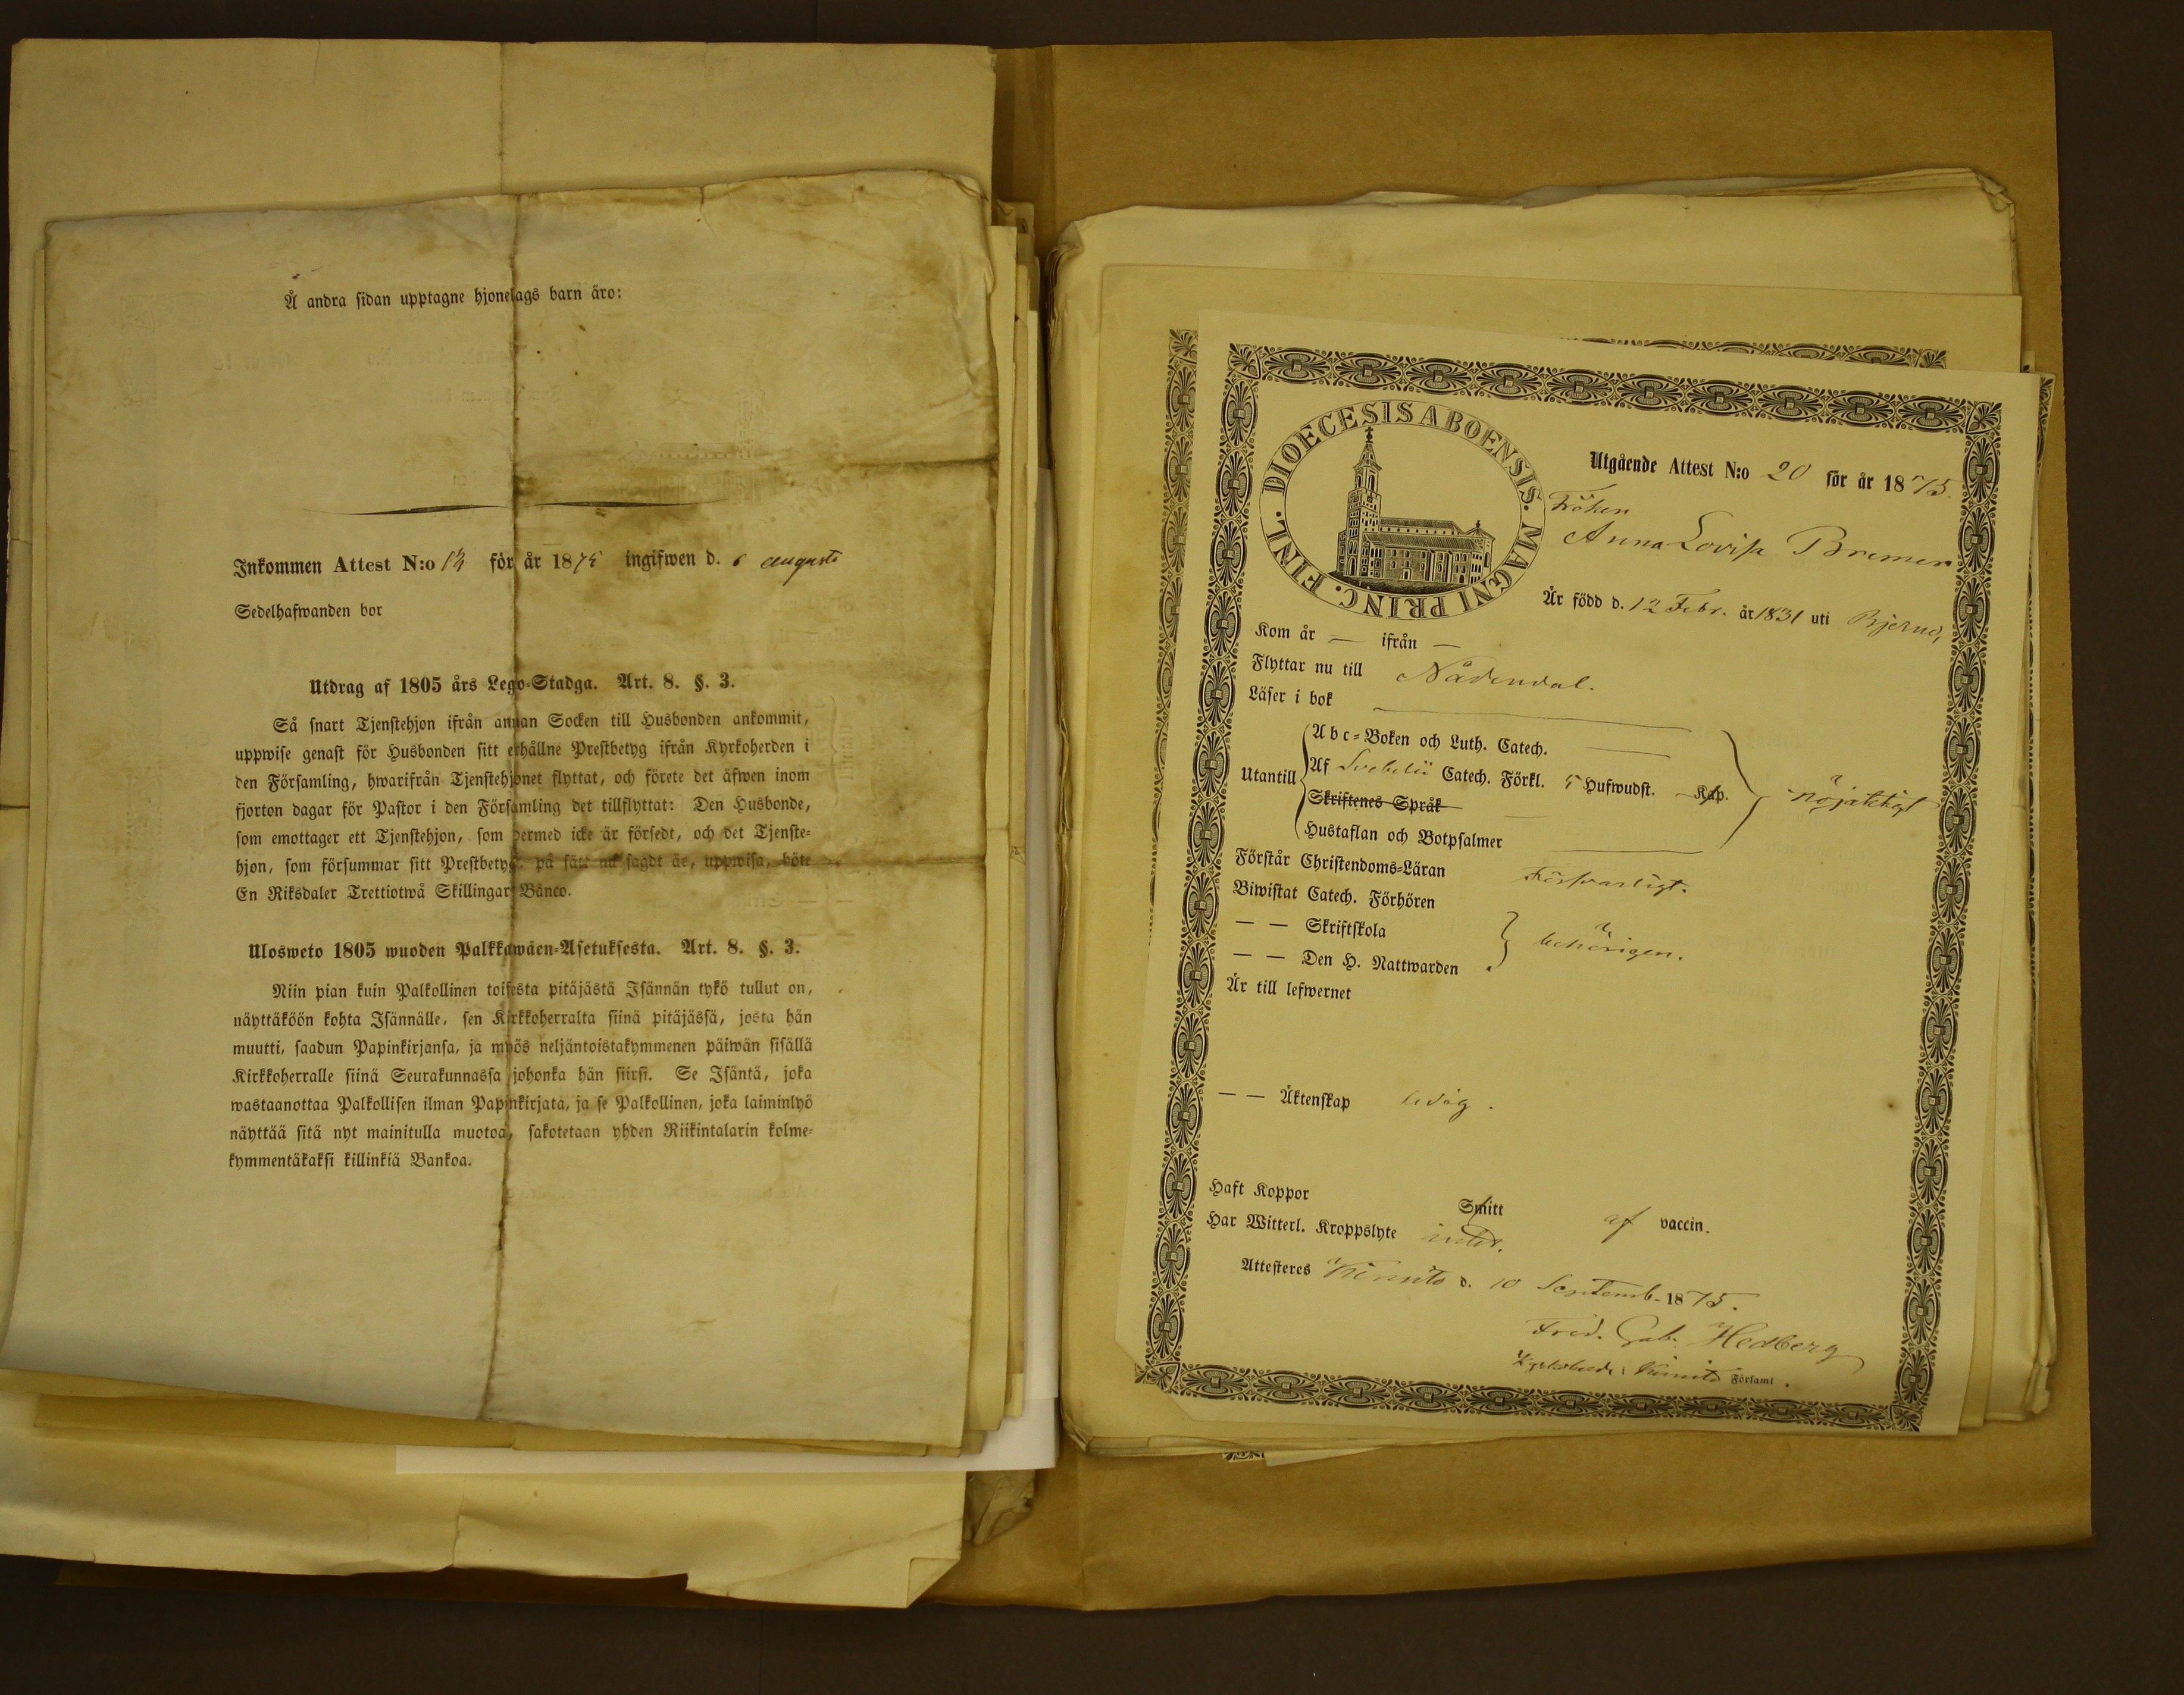 Å andra sidan upptagne hjonelags barn äro:
Inkommen Attest N:o 13 för år 1875 ingifwen d. 6 augusti
Sedelhafwanden bor
Utdrag af 1805 års Lego-Stadga. Art. 8. §. 3.
Så snart Tjenstehjon ifrån annan Socken till Husbonden ankommit,
uppwise genast för Husbonden sitt erhållne Prestbetyg ifrån Kyrkoherden i
den Församling, hwarifrån Tjenstehjonet flyttat, och förete det äfwen inom
fjorton dagar för Pastor i den Församling det tillflyttat: Den Husbonde,
som emottager ett Tjenstehjon, som dermed icke är försedt, och det Tjenste-
hjon, som försummar sitt Prestbetyg, på sätt nu sagdt är, uppwisa, böte
En Riksdaler Trettiotwå Skillingar Banco.
Ulosweto 1805 wuoden Palkkawäen-Asetuksesta. Art. 8. §. 3.
Niin pian kuin Palkollinen toisesta pitäjästä Isännän tykö tullut on,
näyttäköön kohta Isännälle, sen Kirkkoherralta siinä pitäjässä, josta hän
muutti, saadun Papinkirjansa, ja myös neljäntoistakymmenen päiwän sisällä
Kirkkoherralle siinä Seurakunnassa johonka hän siirsi. Se Isäntä, joka
wastaanottaa Palkollisen ilman Papinkirjata, ja se Palkollinen, joka laiminlyö
näyttää sitä nyt mainitulla muotoa, sakotetaan yhden Riikintalarin kolme-
kymmentäkaksi killinkiä Bankoa.
DIOECESIS ABOENSIS. MAGNI PRINC. FINL.
Utgående Attest N:o 20 för år 1875.
Fröken
Anna Lovisa Bremer
Är född d. 12 Febr. år 1831 uti Bjerno,
Kom år — ifrån —
Flyttar nu till Nådendal.
Läser i bok
Utantill
Abc-Boken och Luth. Catech.
Af Svebelii Catech. Förkl. 5 Hufwudst. Kap.
Skriftenes Språk
Hustaflan och Botpsalmer
nöjaktigt
Förstår Christendoms-Läran Försvarligt.
Biwistat Catech. Förhören
— — Skriftskola
— — Den H. Nattwarden
behörigen.
Är till lefwernet
— — Äktenskap ledig.
Haft Koppor Smitt af vaccin.
Har Witterl. Kroppslyte intet.
Attesteres Kimito d. 10 Septemb. 1875.
Fred. Gab. Hedberg
Kyrkoherde i Kimito Församl.